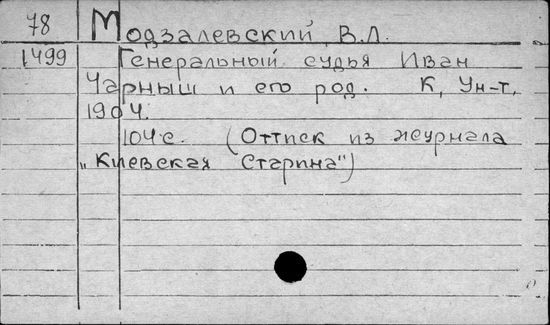 78 Модзалевский, В.Л.
1499 Генеральный судья Иван
Чарныш и его род. К, Ун-т,
1904.
104с. (Оттиск из журнала
"Киевская Старина")